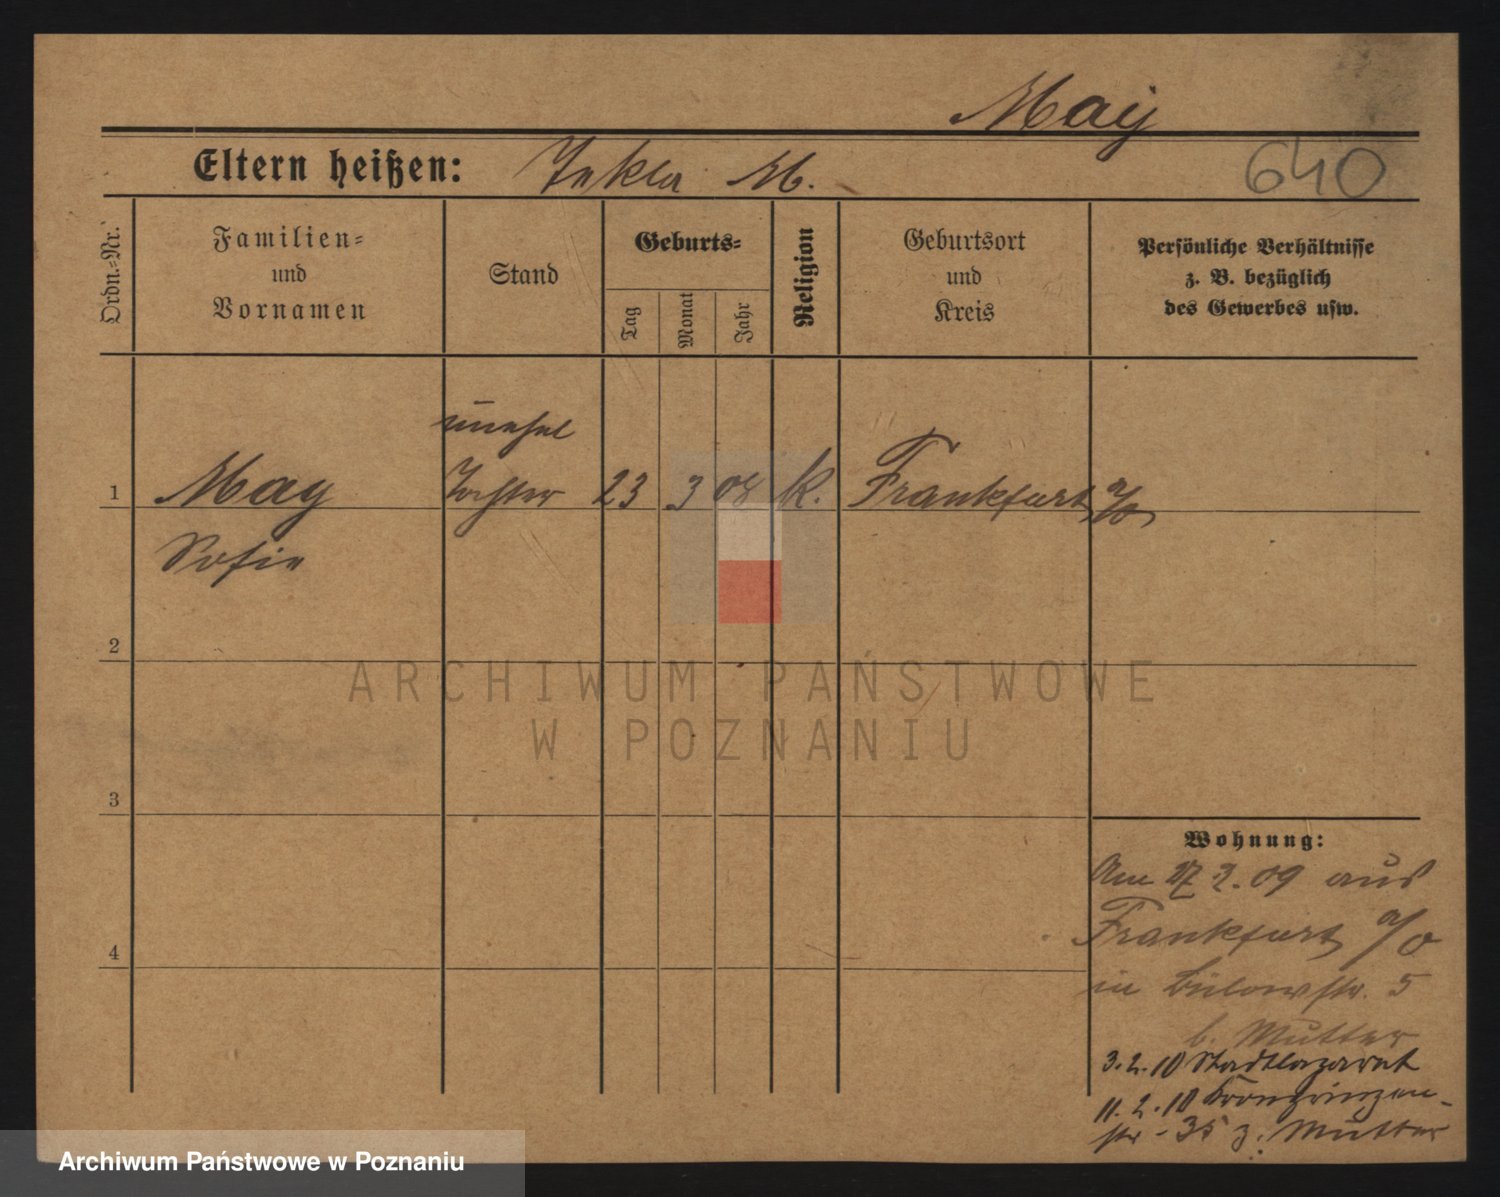 May
Eltern heißen: Tekla M.
640
Ordn.-Nr.
Familien-
und
Vornamen
Stand
Geburts-
Tag
Monat
Jahr
Religion
Geburtsort
und
Kreis
Persönliche Verhältnisse
z. B. bezüglich
des Gewerbes usw.
unehel
1 May Tochter 23 3 08 k. Frankfurt a/O
Sofie
2
3
4
ARCHIWUM PAŃSTWOWE
W POZNANIU
Wohnung:
Am 2.09 aus
Frankfurt a/O
in Bülowstr. 5
b. Mutter
3.2.10 Stadtlazarett
11.2.10 Kronprinzen-
str. 35 z. Mutter
Archiwum Państwowe w Poznaniu